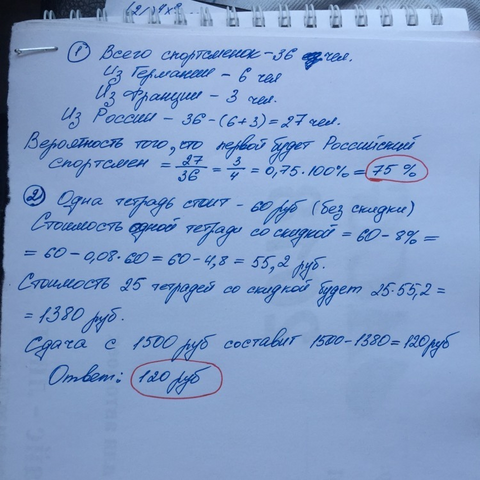 ① Всего спортсменок - 36 чел.
Из Германии - 6 чел
Из Франции - 3 чел.
Из России - 36 - (6+3) = 27 чел.
Вероятность того, что первой будет Российский
спортсмен = 27/36 = 3/4 = 0,75·100% = 75 %
② Одна тетрадь стоит - 60 руб (без скидки)
Стоимость одной тетради со скидкой = 60 - 8% =
= 60 - 0,08·60 = 60 - 4,8 = 55,2 руб.
Стоимость 25 тетрадей со скидкой будет 25·55,2 =
= 1380 руб.
Сдача с 1500 руб составит 1500 - 1380 = 120 руб
Ответ: 120 руб